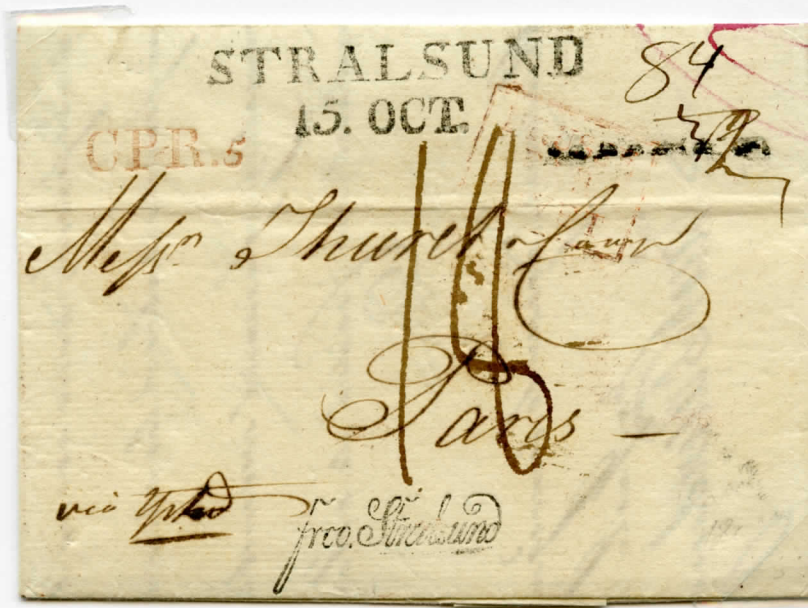 STRALSUND
15. OCT.
84
C.P.R.5
Messrs Thuret &
18
Paris
via
frco. Stralsund